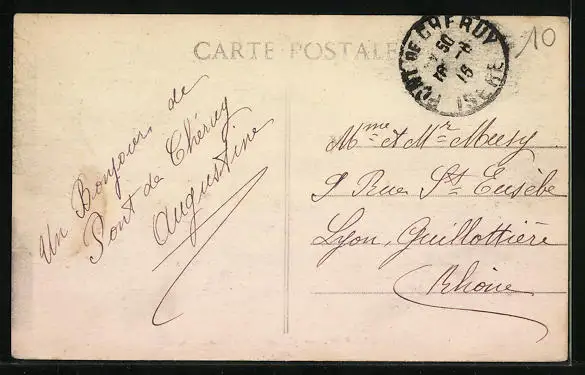 CARTE POSTALE
10
PONT DE CHERUY
ISERE
Un Bonjour de
Pont de Chéruy
Augustine
Mme et Mr
9 Rue St Eusèbe
Lyon, Guillottière
Rhône